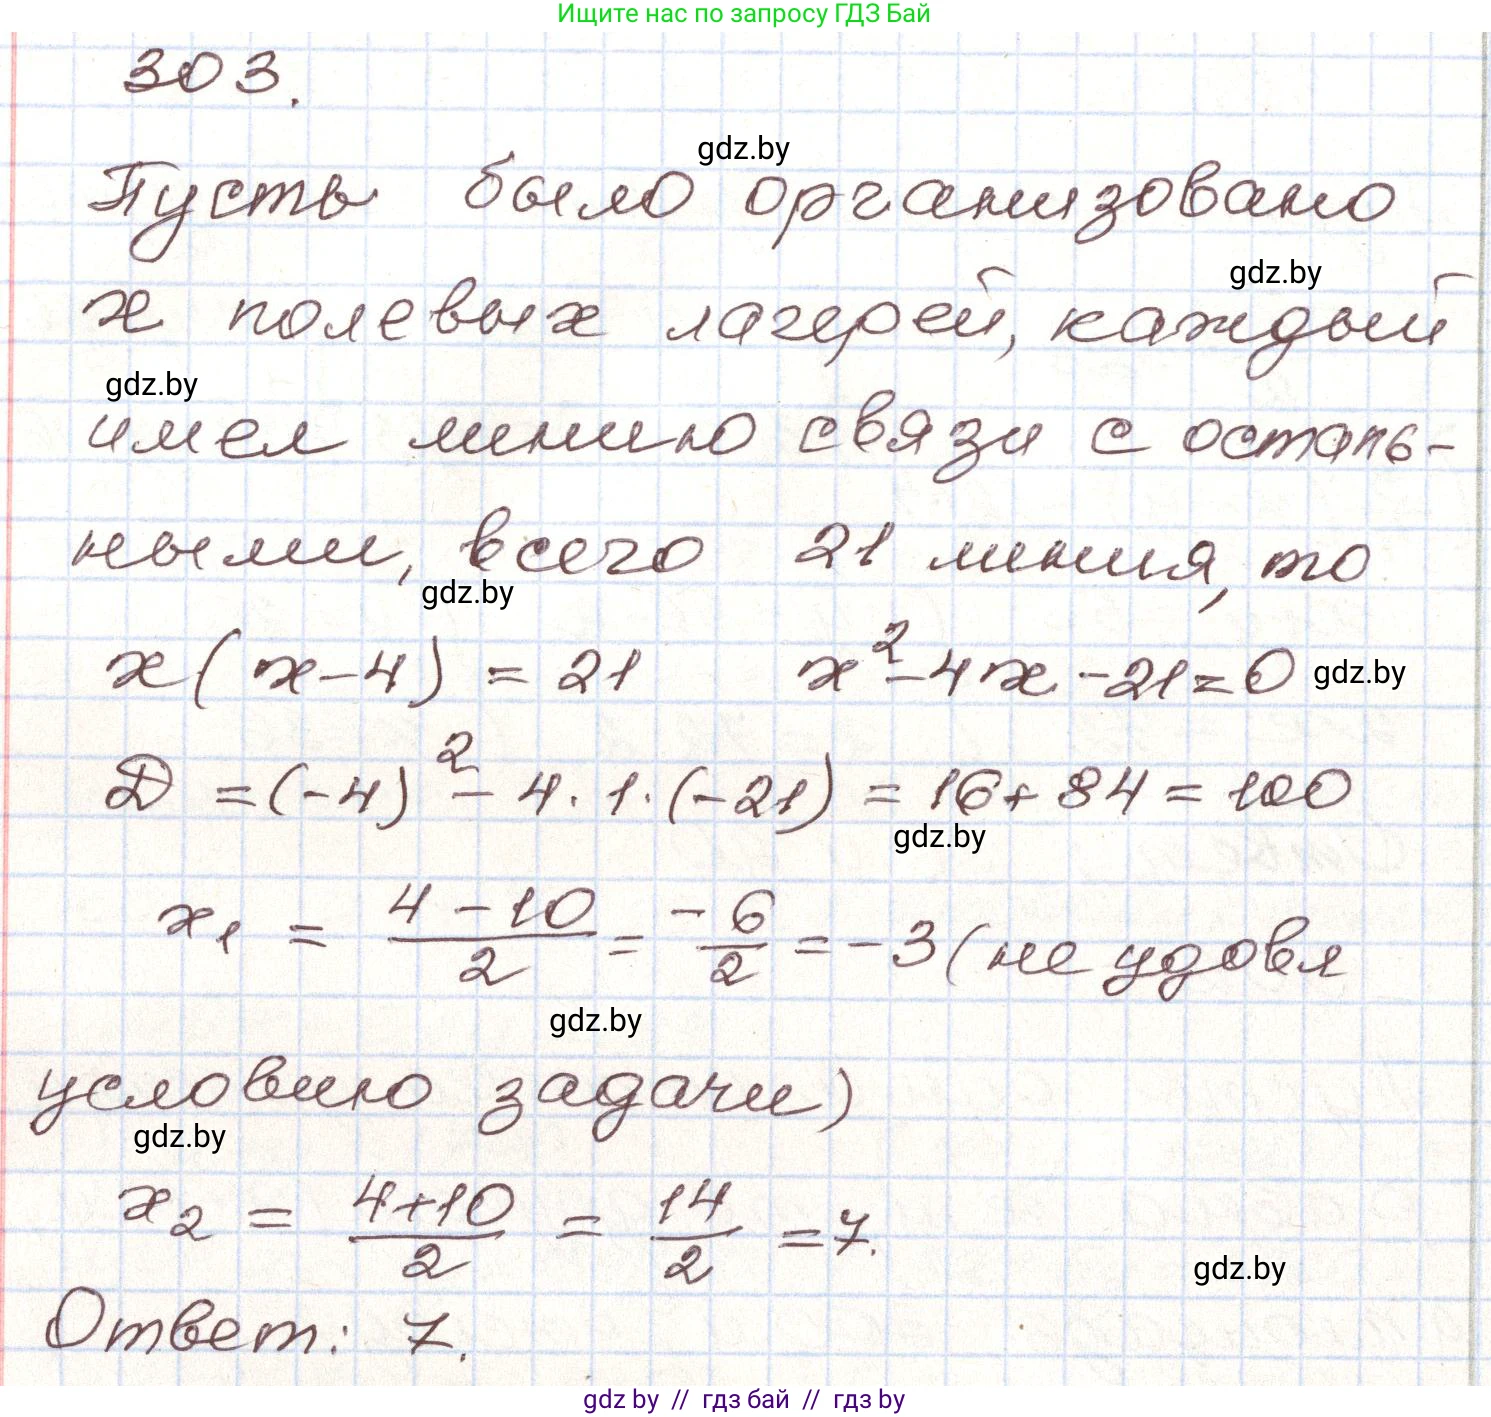 Ищите нас по запросу ГДЗ Бай
303.
gdz.by
Пусть было организовано
gdz.by
x полевых лагерей, каждый
gdz.by
имел линию связи с осталь-
ными, всего 21 линия, то
gdz.by
x(x-4) = 21 x² - 4x - 21 = 0 gdz.by
Д = (-4)² - 4 · 1 · (-21) = 16 + 84 = 100
gdz.by
x₁ = (4 - 10)/2 = -6/2 = -3 (не удовл
gdz.by
условию задачи)
gdz.by
x₂ = (4+10)/2 = 14/2 = 7.
gdz.by
Ответ: 7.
gdz.by // гдз бай // гдз by